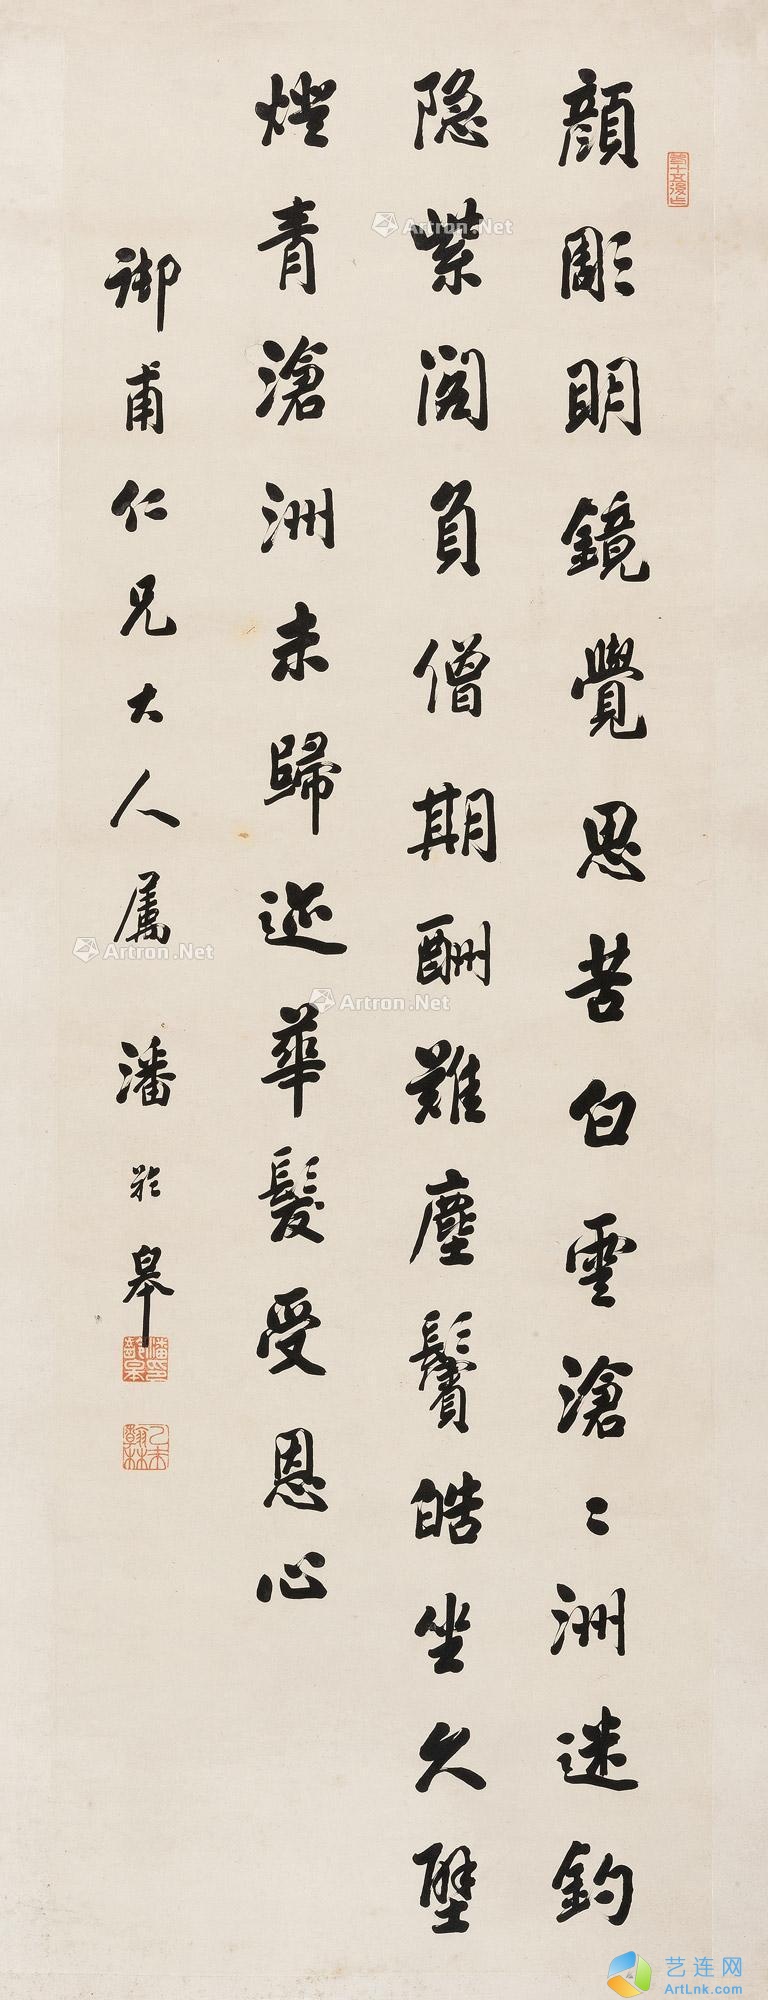 顔彫明鏡覺思苦白雲滄〻洲迷釣
隐紫閣負僧期酬難塵鬢皓坐久壁
燈青滄洲未歸迹華髮受恩心
御甫仁兄大人属 潘齡皋
潘齡皋印
乙未翰林
Artron.Net
Artron.Net
Artron.Net
艺连网
ArtLnk.com